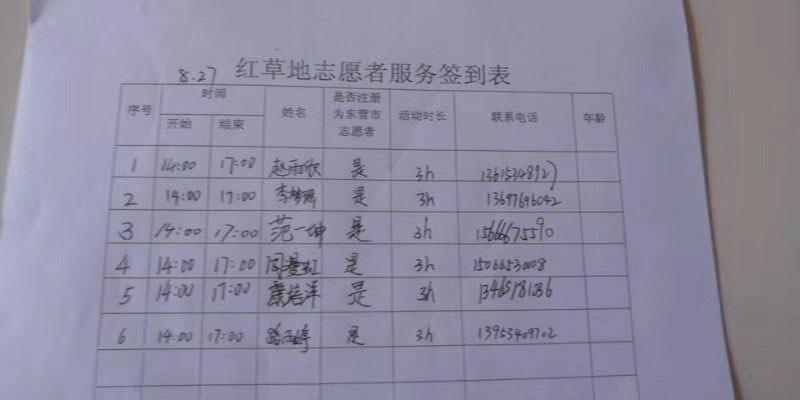 8.27 红草地志愿者服务签到表
序号 时间 姓名 是否注册为东营市志愿者 活动时长 联系电话 年龄
开始 结束
1 14:00 17:00 赵雨欣 是 3h 13615348927
2 14:00 17:00 李梦瑶 是 3h 13697696042
3 14:00 17:00 范一坤 是 3h 15666675590
4 14:00 17:00 是 3h 15066530008
5 14:00 17:00 是 3h 13465181236
6 14:00 17:00 是 3h 13953409702